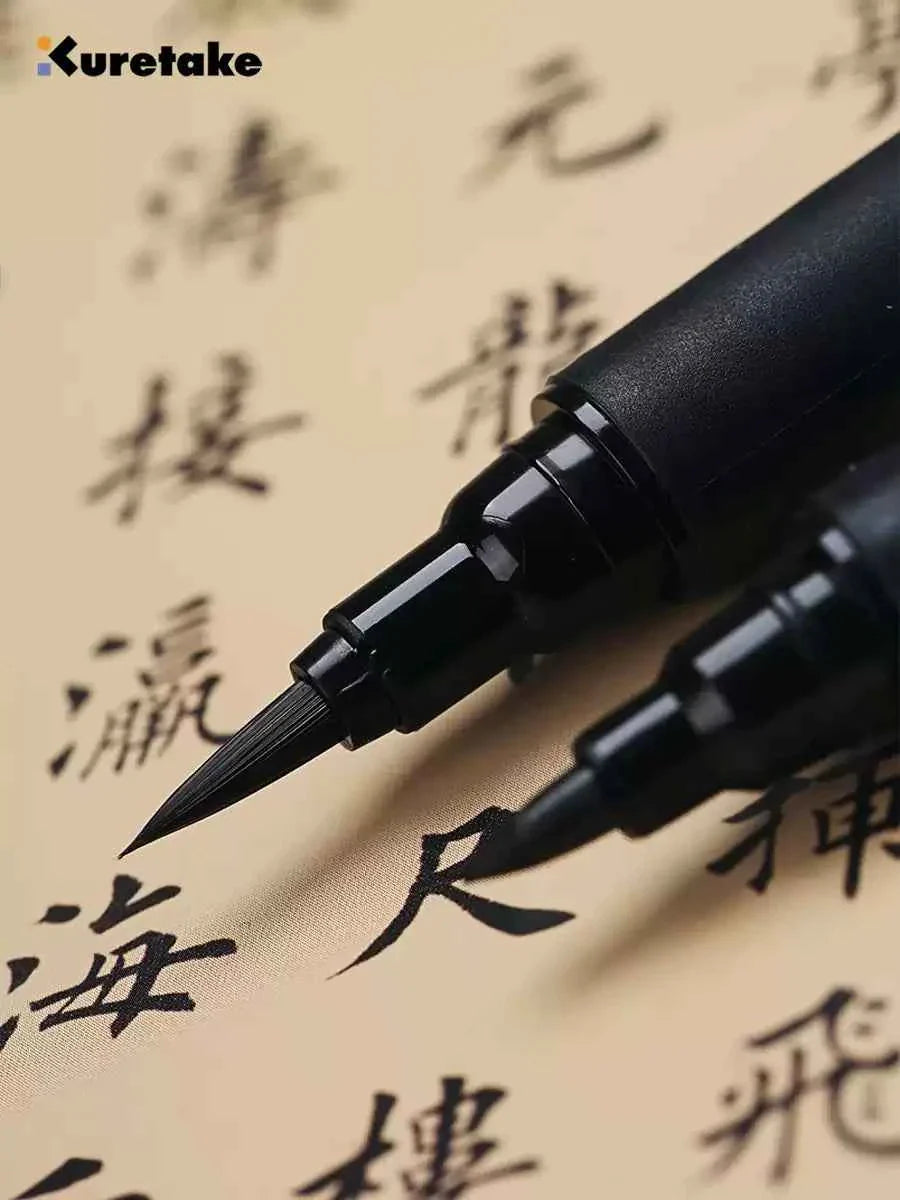 Kuretake
插飛
元龍尺樓
濤接瀛海